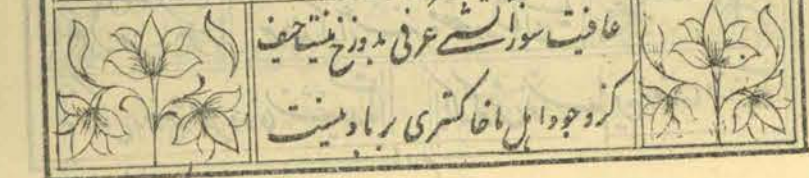 عافیت سوز آتشے عرفی بدوزخ نیست حیف
کز وجود اہل ما خاکستری بر باد نیست